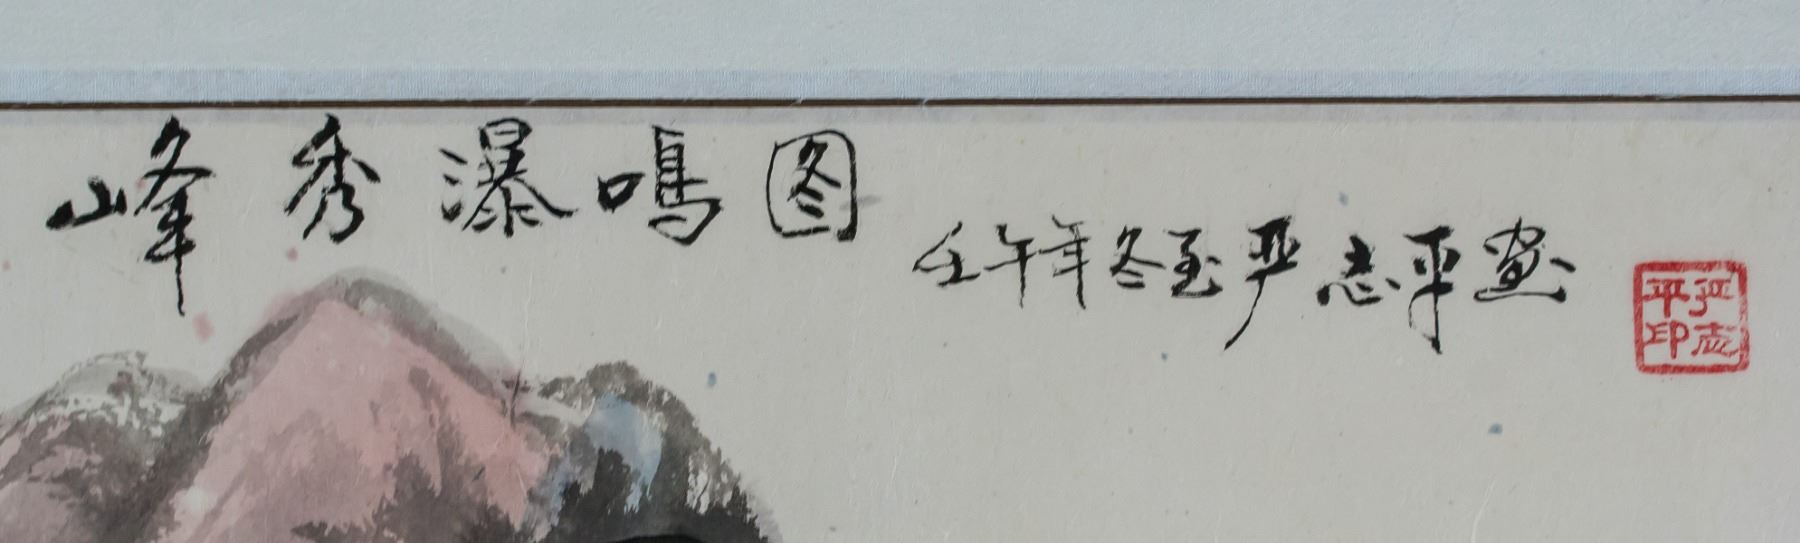 峰秀瀑鸣图
壬午年冬至严志平画
严志平印